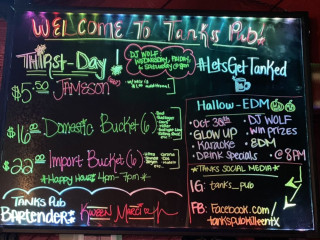 WELCOME TO Tankss Pub!
THIRST-DAY!
$5.50 JAMESON
DJ WOLF
WEDNESDAY, FRIDAY,
& SATURDAY @ 9pm
#LetsGetTanked
$16.00 Domestic Bucket (6)
$22.00 Import Bucket (6)
*HAPPY HOUR! 4pm-7pm*
Hallow-EDM
• Oct 30th
• GLOW UP
• Karaoke
• DRINK Specials
• DJ WOLF
• WIN PRIZES
• 8DM
• @8PM
*TANKS SOCIAL MEDIA*
IG: tanks_pub
FB: Facebook.com/
tankspubkilleentx
TANKS PUB
BARTENDER: